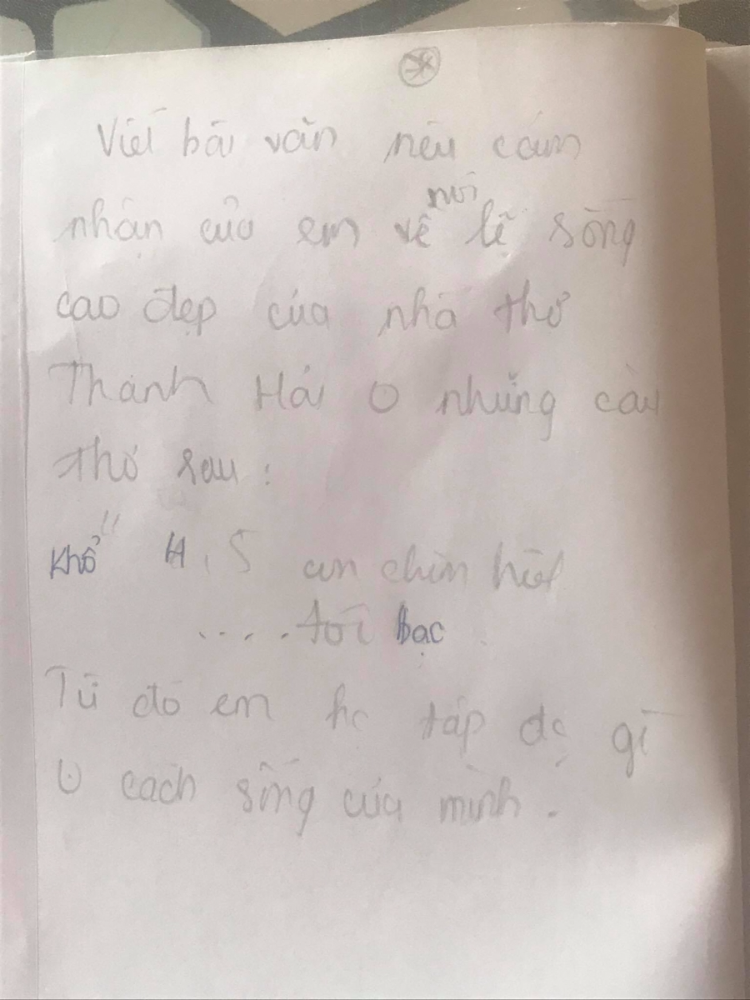 Viết bài văn nêu cảm
nhận của em về lẽ sống
cao đẹp của nhà thơ
Thanh Hải ở những câu
thơ sau:
Khổ 4, 5
....tóc bạc
Từ đó em học tập đc gì
ở cách sống của mình.